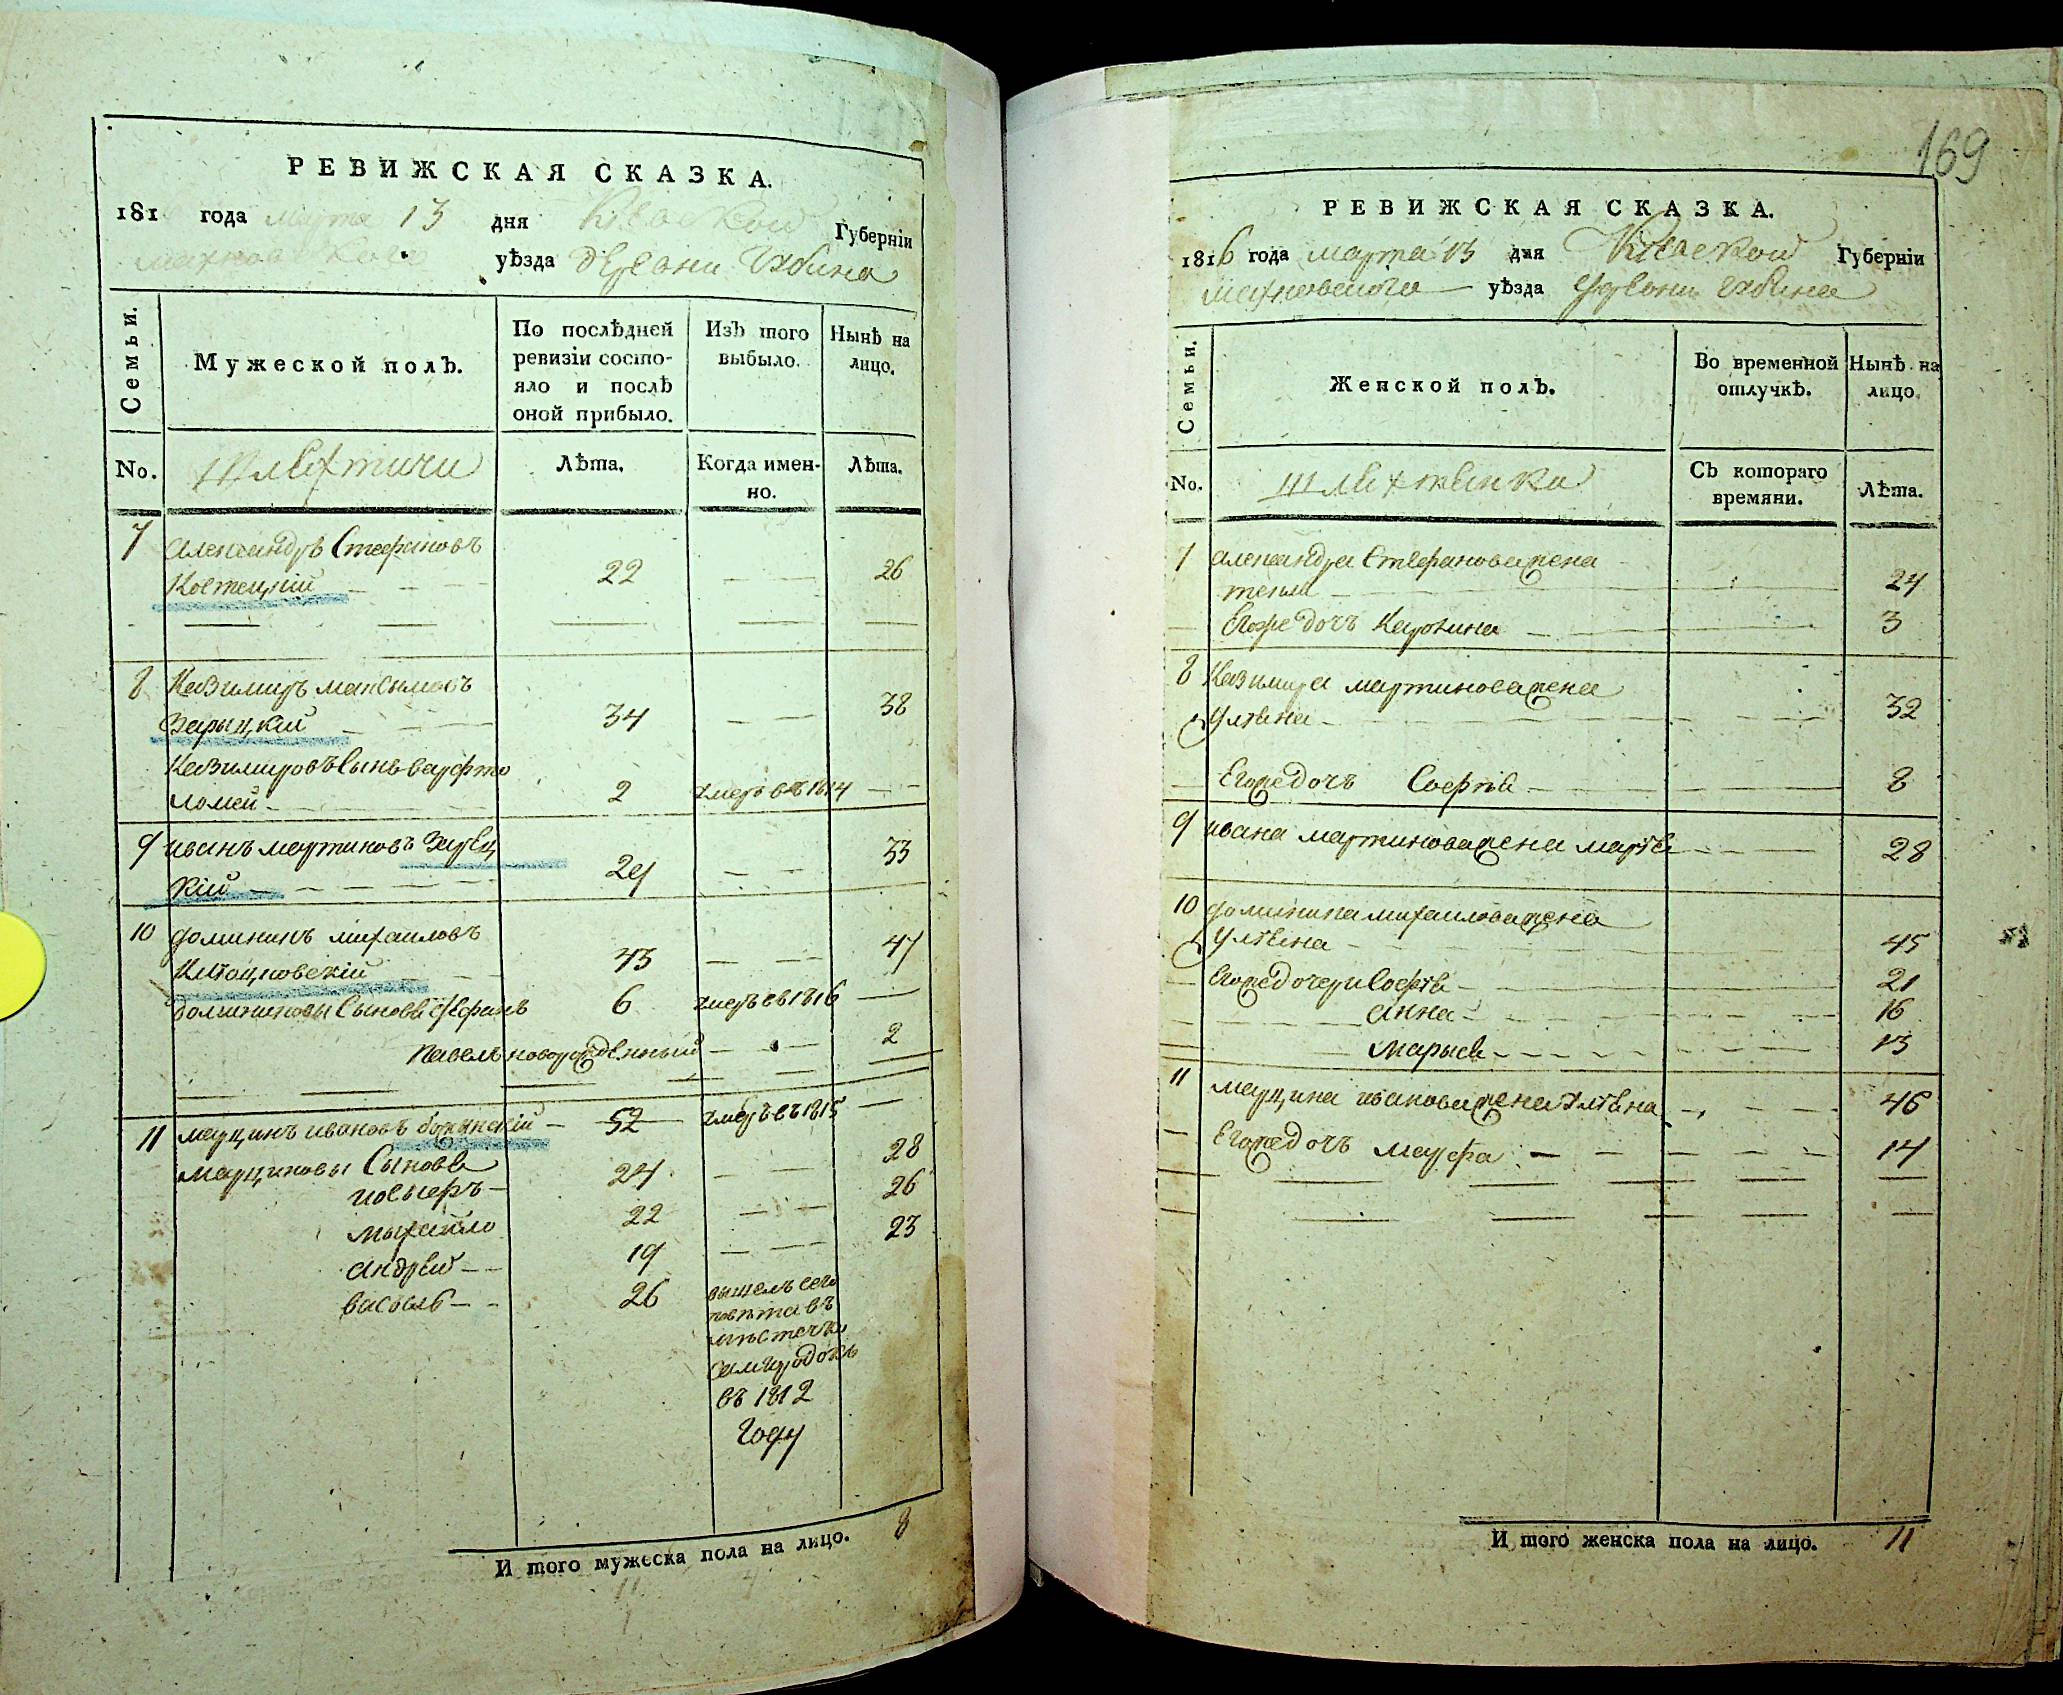 РЕВИЖСКАЯ СКАЗКА.
181 года марта 13 дня Кіевской Губерніи
махновского уѣзда деревни
Семьи.
Мужеской полъ.
По послѣдней ревизіи состояло и послѣ оной прибыло.
Изъ того выбыло.
Нынѣ на лицо.
No. Шляхтичи Лѣта. Когда именно. Лѣта.
7 александръ Стефановъ
Костецкий 22 26
8 Казимиръ максымовъ
Зарыцкій 34 38
Казимировъ Сынъ варфто
ломей 2 умеръ въ 1814
9 иванъ мартиновъ Зарец
кій 29 33
10 доминикъ михаиловъ
43 47
доминиковы Сыновя стефанъ 6 умеръ въ 1816
павелъ новорожденный 2
11 марцинъ ивановъ 52 умеръ въ 1815
марциновы Сыновя
иосыфъ 24 28
михайло 22 26
андрей 19 23
василь 26 вышелъ сего
повѣта въ
мѣстечко
самгородокъ
въ 1812
Году
И того мужеска пола на лицо. 8
169
РЕВИЖСКАЯ СКАЗКА.
1816 года марта 13 дня Кіевской Губерніи
махновского уѣзда деревни
Семьи.
Женской полъ.
Во временной отлучкѣ.
Нынѣ на лицо.
No. шляхтянки Съ котораго времяни. Лѣта.
7 александра Стефанова жена
текля 24
Егоже дочъ Каролина 3
8 Казимира мартинова жена
улияна 32
Егоже дочъ Софія 8
9 ивана мартинова жена маря 28
10 доминика михаилова жена
улияна 45
Егоже дочери Софія 21
анна 16
марыя 13
11 марцина иванова жена улияна 46
Егоже дочъ марфа 14
И того женска пола на лицо. 11